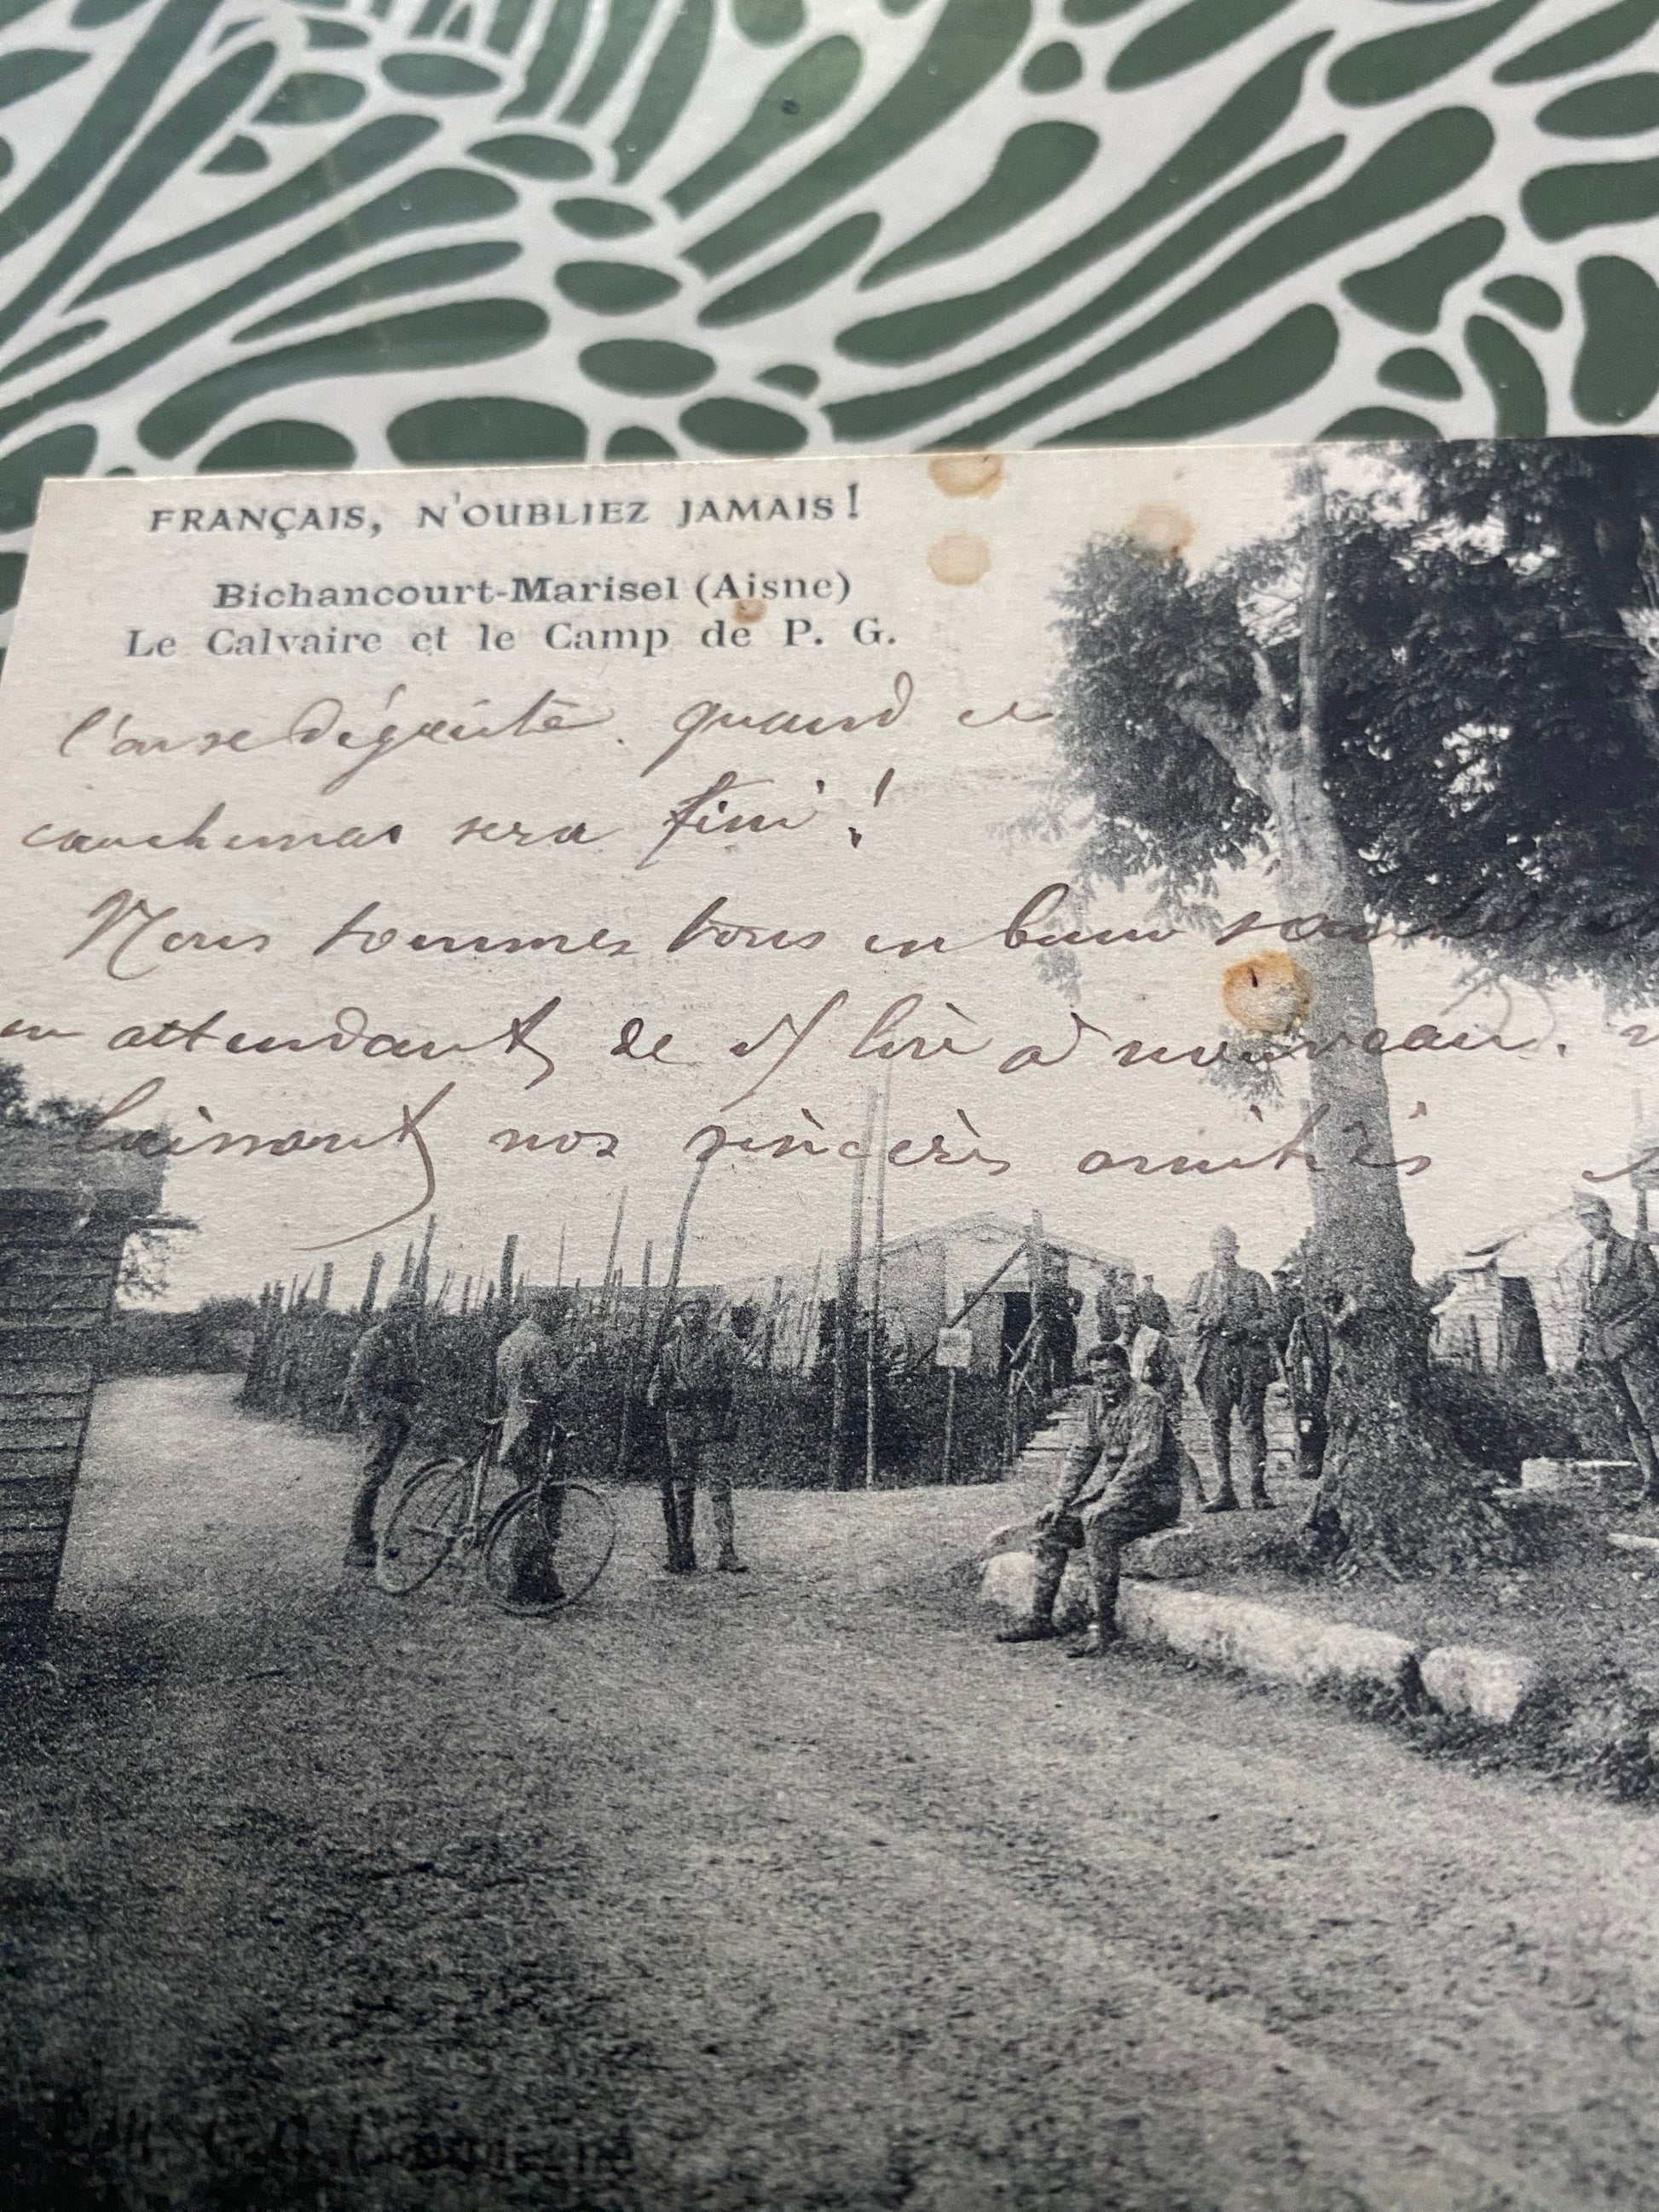 FRANÇAIS, N'OUBLIEZ JAMAIS!
Bichancourt-Marisel (Aisne)
Le Calvaire et le Camp de P. G.
quand ce
cauchemar sera fini !
Nous sommes tous en bonne santé
en attendant de v/ lire à nouveau.
laissant nos sincères amitiés